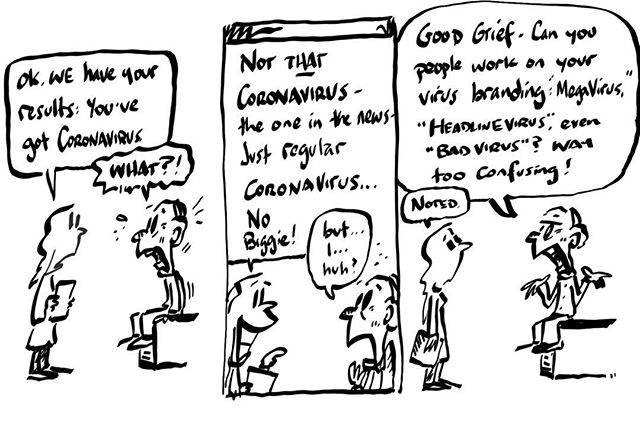 OK, WE have your
results: You've
got CORONAVIRUS
WHAT?!
NOT THAT
CORONAVIRUS -
the one in the news-
Just regular
CORONAVIRUS...
NO
Biggie!
but...
I...
huh?
GOOD GRIEF - CAN you
people work on your
virus branding? "MegaVirus,"
"HEADLINEVIRUS", even
"BADVIRUS"? WAY
too CONFUSING!
NOTED.